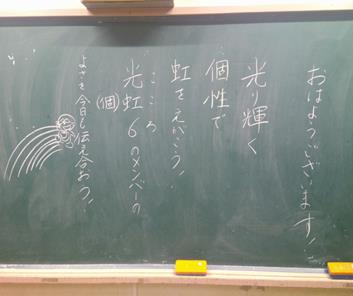 おはようございます!
光り輝く
個性で
虹をえがこう!
こころ
光虹6のメンバーの
(個)
よさを今日も伝え合おう!